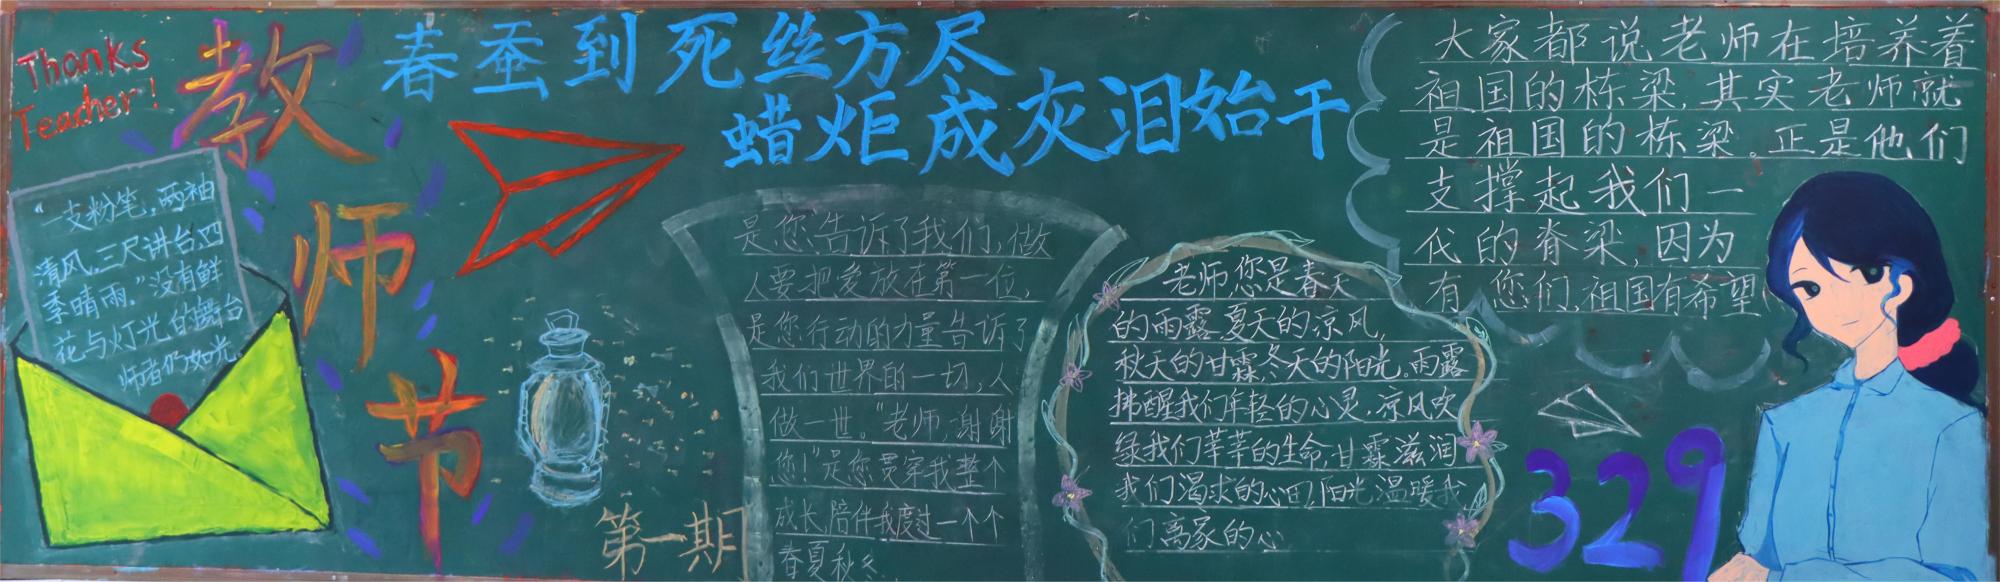 Thanks
Teacher!
教
师
节
春蚕到死丝方尽
蜡炬成灰泪始干
“一支粉笔，两袖
清风，三尺讲台，四
季晴雨。”没有鲜
花与灯光的舞台
师者仍如光。
第一期
是您告诉了我们，做
人要把爱放在第一位，
是您行动的力量告诉了
我们世界的一切，人
做一世。“老师，谢谢
您！”是您贯穿我整个
成长，陪伴我度过一个个
春夏秋冬。
老师，您是春天
的雨露，夏天的凉风，
秋天的甘霖，冬天的阳光。雨露
拂醒我们年轻的心灵，凉风吹
绿我们莘莘的生命，甘霖滋润
我们渴求的心田，阳光温暖我
们离家的心
大家都说老师在培养着
祖国的栋梁，其实老师就
是祖国的栋梁。正是他们
支撑起我们一
代的脊梁，因为
有您们，祖国有希望
329